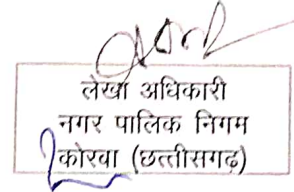 लेखा अधिकारी
नगर पालिक निगम
कोरबा (छत्तीसगढ़)